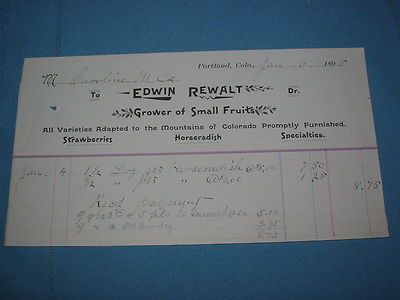 Portland, Colo. Jan 10 1895
M Caroline M. Co
To EDWIN REWALT Dr.
Grower of Small Fruits
All Varieties Adapted to the Mountains of Colorado Promptly Furnished.
Strawberries Horseradish Specialties.
Jan. 4 1 1/2 Doz Horseradish 5.00 7 50
1/2 " " 1 25
8.75
Recd payment
9 + 5 to 5.00
9 " 3.75
8.75